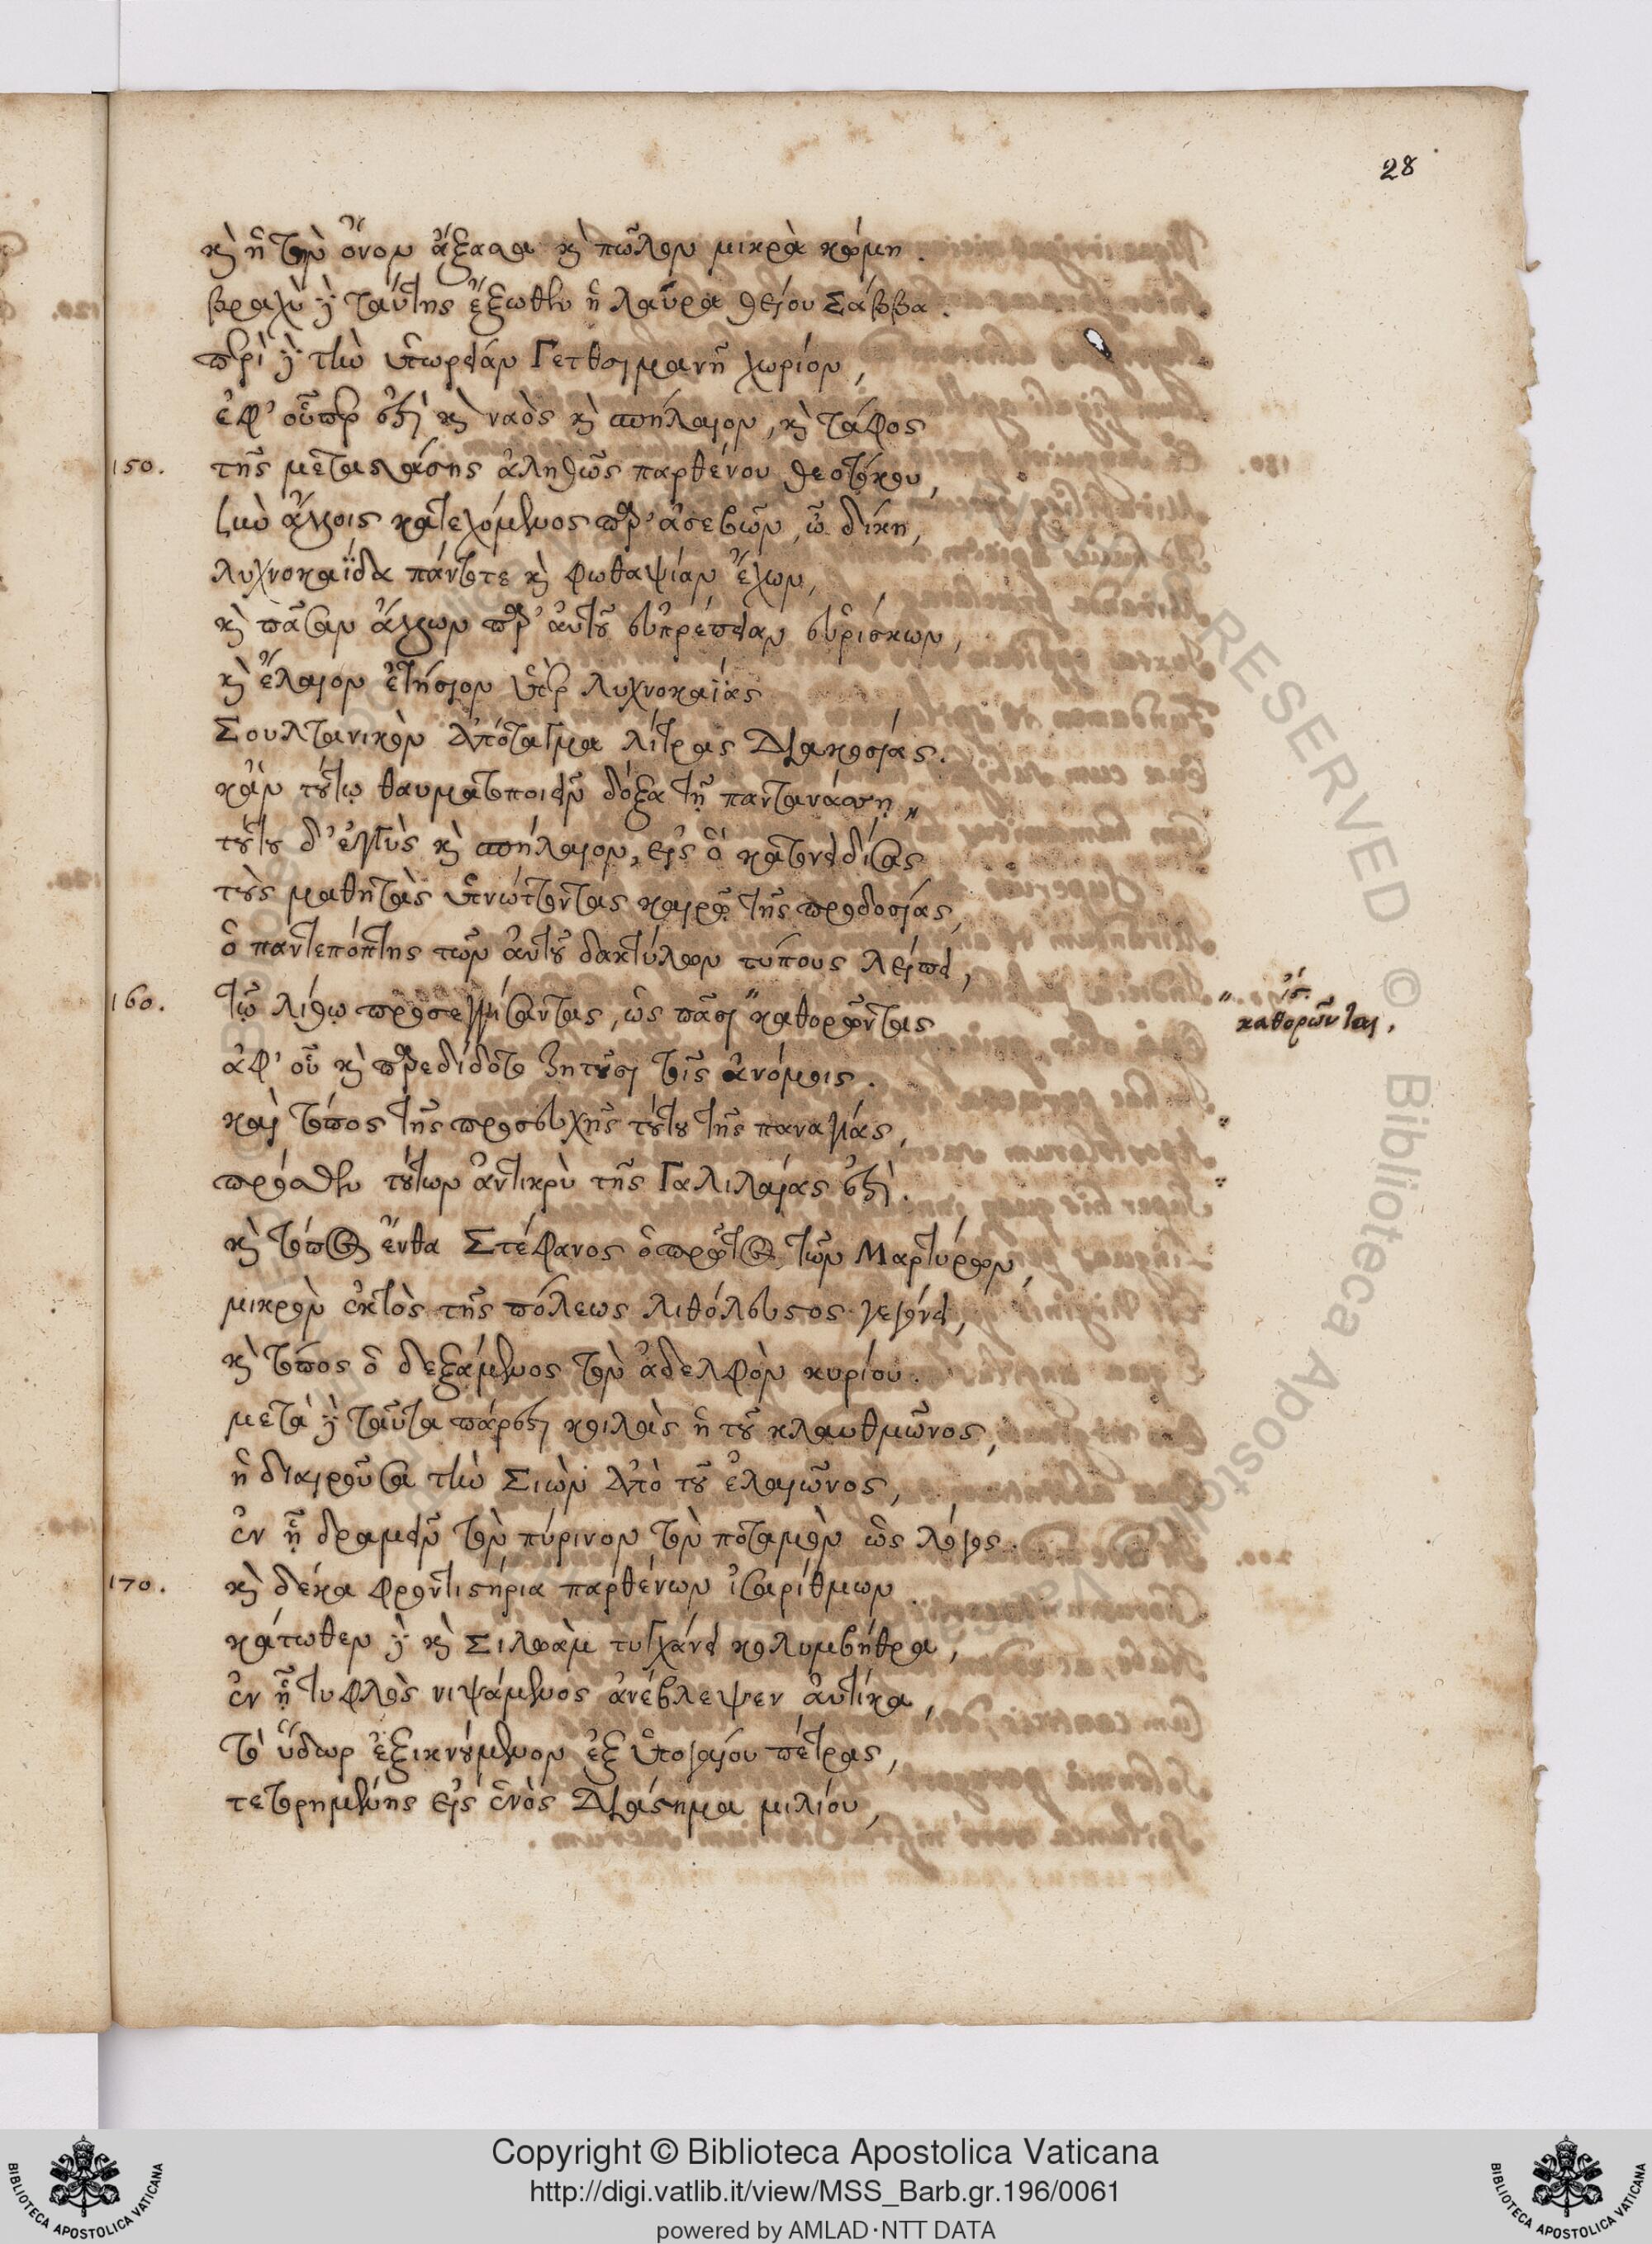 28
κὴ ἡ τὸν ὄνον ἄξασα κὴ πῶλον μικρὰ κώμη.
βραχὺ δὲ ταύτης ἔξωθεν ἡ λαύρα θείου Σάββα.
περὶ δὲ τὴν ὑπωρείαν Γετθσιμανῆ χωρίον,
ἐφ' οὗπερ ἐστὶ κὴ ναὸς κὴ σπήλαιον, κὴ τάφος
150. τῆς μεταστάσης ἀληθῶς παρθένου θεοτόκου,
νῦν κατεχόμενος παρ' ἀσεβῶν, ὦ δίκη,
λυχνοκαΐδα πάντοτε κὴ φωθαψίαν ἔχων,
κὴ πᾶσαν ἄλλων παρ' αὐτοῦ εὐπρέπειαν εὑρίσκων,
κὴ ἔλαιον ἐτήσιον ὑπὲρ λυχνοκαΐας
Σουλτανικὸν ἀπόταγμα λίτρας διακοσίας.
κἂν τούτῳ θαυματοποιεῖν δόξα τῇ παντανάσσῃ,,
τούτου δ' ἐγγὺς κὴ σπήλαιον, εἰς ὃ κατονειδίσας
τοὺς μαθητὰς ὑπνώττοντας καιρῷ τῆς προδοσίας,
ὁ παντεπόπτης τῶν αὐτοῦ δακτύλων τύπους λείπει,
160. τῷ λίθῳ προσεγγίσαντας, ὡς πᾶσι "καθορῶντας
" ἴσ. καθορῶνται,
ἀφ' οὗ κὴ παρεδίδοτο ζητοῦσι τοῖς ἀνόμοις.
καὶ τόπος τῆς προσευχῆς τούτου τῆς παναγίας,
πρόσθεν τούτων ἀντικρὺ τῆς Γαλιλαίας ἐστὶ.
κὴ τόπος ἔνθα Στέφανος ὁ πρῶτος τῶν Μαρτύρων,
μικρὸν ἐκτὸς τῆς πόλεως λιθόλευστος γεγόνει,
κὴ τόπος ὁ δεξάμενος τὸν ἀδελφὸν κυρίου.
μετὰ δὲ ταῦτα πάρεστι κοιλὰς ἡ τοῦ κλαυθμῶνος,
ἡ διαιροῦσα τὴν Σιὼν ἀπὸ τοῦ ἐλαιῶνος,
ἐν ᾗ δραμεῖν τὸν πύρινον τὸν ποταμὸν ὡς λόγος.
170. κὴ δέκα φροντιστήρια παρθένων ἰσαρίθμων.
κάτωθεν δὲ κὴ Σιλωὰμ τυγχάνει κολυμβήθρα,
ἐν ᾗ τυφλὸς νιψάμενος ἀνέβλεψεν αὐτίκα,
τὸ ὕδωρ ἐξικνούμενον ἐξ ὑπογαίου πέτρας,
τετορημένης εἰς ἑνὸς διάστημα μιλίου,
Copyright © Biblioteca Apostolica Vaticana
http://digi.vatlib.it/view/MSS_Barb.gr.196/0061
powered by AMLAD·NTT DATA